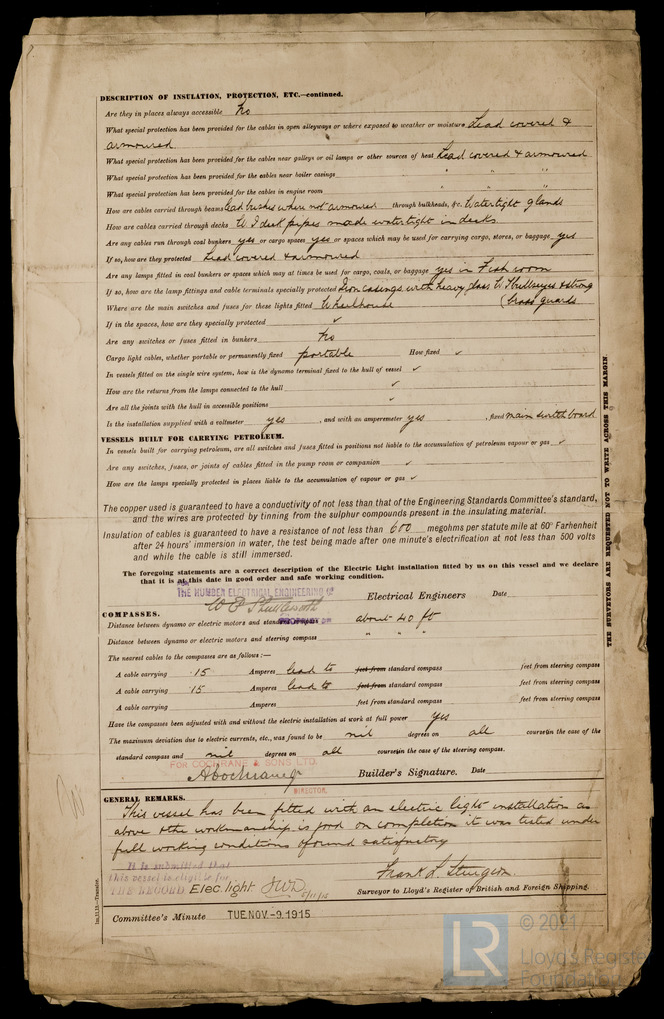 DESCRIPTION OF INSULATION, PROTECTION, ETC.—continued.
Are they in places always accessible No
What special protection has been provided for the cables in open alleyways or where exposed to weather or moisture Lead covered &
armoured
What special protection has been provided for the cables near galleys or oil lamps or other sources of heat Lead covered & armoured
What special protection has been provided for the cables near boiler casings " " "
What special protection has been provided for the cables in engine room " " "
How are cables carried through beams lead bushes where not armoured through bulkheads, &c. Watertight glands
How are cables carried through decks W I deck pipes made watertight in decks
Are any cables run through coal bunkers yes or cargo spaces yes or spaces which may be used for carrying cargo, stores, or baggage yes
If so, how are they protected Lead covered & armoured
Are any lamps fitted in coal bunkers or spaces which may at times be used for cargo, coals, or baggage yes in Fish room
If so, how are the lamp fittings and cable terminals specially protected Iron casings with heavy glass W T bullseyes & strong
Where are the main switches and fuses for these lights fitted Wheelhouse (brass guards
If in the spaces, how are they specially protected ✓
Are any switches or fuses fitted in bunkers No
Cargo light cables, whether portable or permanently fixed portable How fixed ✓
In vessels fitted on the single wire system, how is the dynamo terminal fixed to the hull of vessel ✓
How are the returns from the lamps connected to the hull ✓
Are all the joints with the hull in accessible positions ✓
Is the installation supplied with a voltmeter yes, and with an amperemeter yes, fixed main switchboard
VESSELS BUILT FOR CARRYING PETROLEUM.
In vessels built for carrying petroleum, are all switches and fuses fitted in positions not liable to the accumulation of petroleum vapour or gas ✓
Are any switches, fuses, or joints of cables fitted in the pump room or companion ✓
How are the lamps specially protected in places liable to the accumulation of vapour or gas ✓
The copper used is guaranteed to have a conductivity of not less than that of the Engineering Standards Committee's standard,
and the wires are protected by tinning from the sulphur compounds present in the insulating material.
Insulation of cables is guaranteed to have a resistance of not less than 600 megohms per statute mile at 60° Farhenheit
after 24 hours' immersion in water, the test being made after one minute's electrification at not less than 500 volts
and while the cable is still immersed.
The foregoing statements are a correct description of the Electric Light installation fitted by us on this vessel and we declare
that it is at this date in good order and safe working condition.
FOR
THE HUMBER ELECTRICAL ENGINEERING Co
Electrical Engineers Date
COMPASSES.
Distance between dynamo or electric motors and standard compass about 40 ft
Distance between dynamo or electric motors and steering compass " " "
The nearest cables to the compasses are as follows:—
A cable carrying .15 Amperes lead to feet from standard compass feet from steering compass
A cable carrying .15 Amperes lead to feet from standard compass feet from steering compass
A cable carrying Amperes feet from standard compass feet from steering compass
Have the compasses been adjusted with and without the electric installation at work at full power yes
The maximum deviation due to electric currents, etc., was found to be nil degrees on all course in the case of the
standard compass and nil degrees on all course in the case of the steering compass.
FOR COCHRANE & SONS LTD.
Builder's Signature. Date
DIRECTOR.
GENERAL REMARKS.
This vessel has been fitted with an electric light installation as
above & the workmanship is good on completion it was tested under
full working conditions & found satisfactory
It is submitted that
this vessel is eligible for
THE RECORD Elec. light JWD 8/11/15
Frank L. Sturgeon
Surveyor to Lloyd's Register of British and Foreign Shipping.
Committee's Minute TUE.NOV.-9.1915
THE SURVEYORS ARE REQUESTED NOT TO WRITE ACROSS THIS MARGIN.
LR
© 2021
Lloyd's Register
Foundation